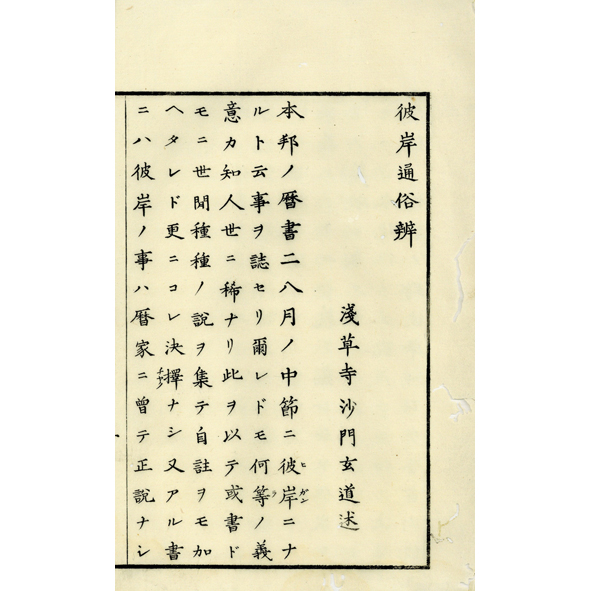 彼岸通俗辨
淺草寺沙門玄道述
本邦ノ暦書二八月ノ中節ニ彼岸ニナ
ルト云事ヲ誌セリ爾レドモ何等ノ義
意カ知人世ニ稀ナリ此ヲ以テ或書ド
モニ世聞種種ノ説ヲ集テ自註ヲモ加
ヘタレド更ニコレ決擇ナシ又アル書
ニハ彼岸ノ事ハ暦家ニ曾テ正説ナシ